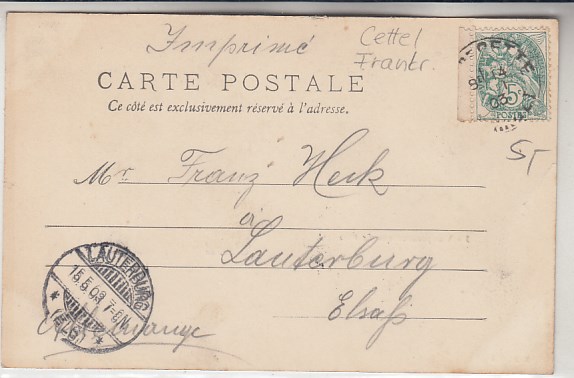 Imprimé
Cette!
Frankr.
CARTE POSTALE
Ce côté est exclusivement réservé à l'adresse.
5
POSTES
5,-
Mr. Franz Heck
à
Lauterburg
Elsaß
LAUTERBURG
15.5.03 7-8N.
(ELS.)